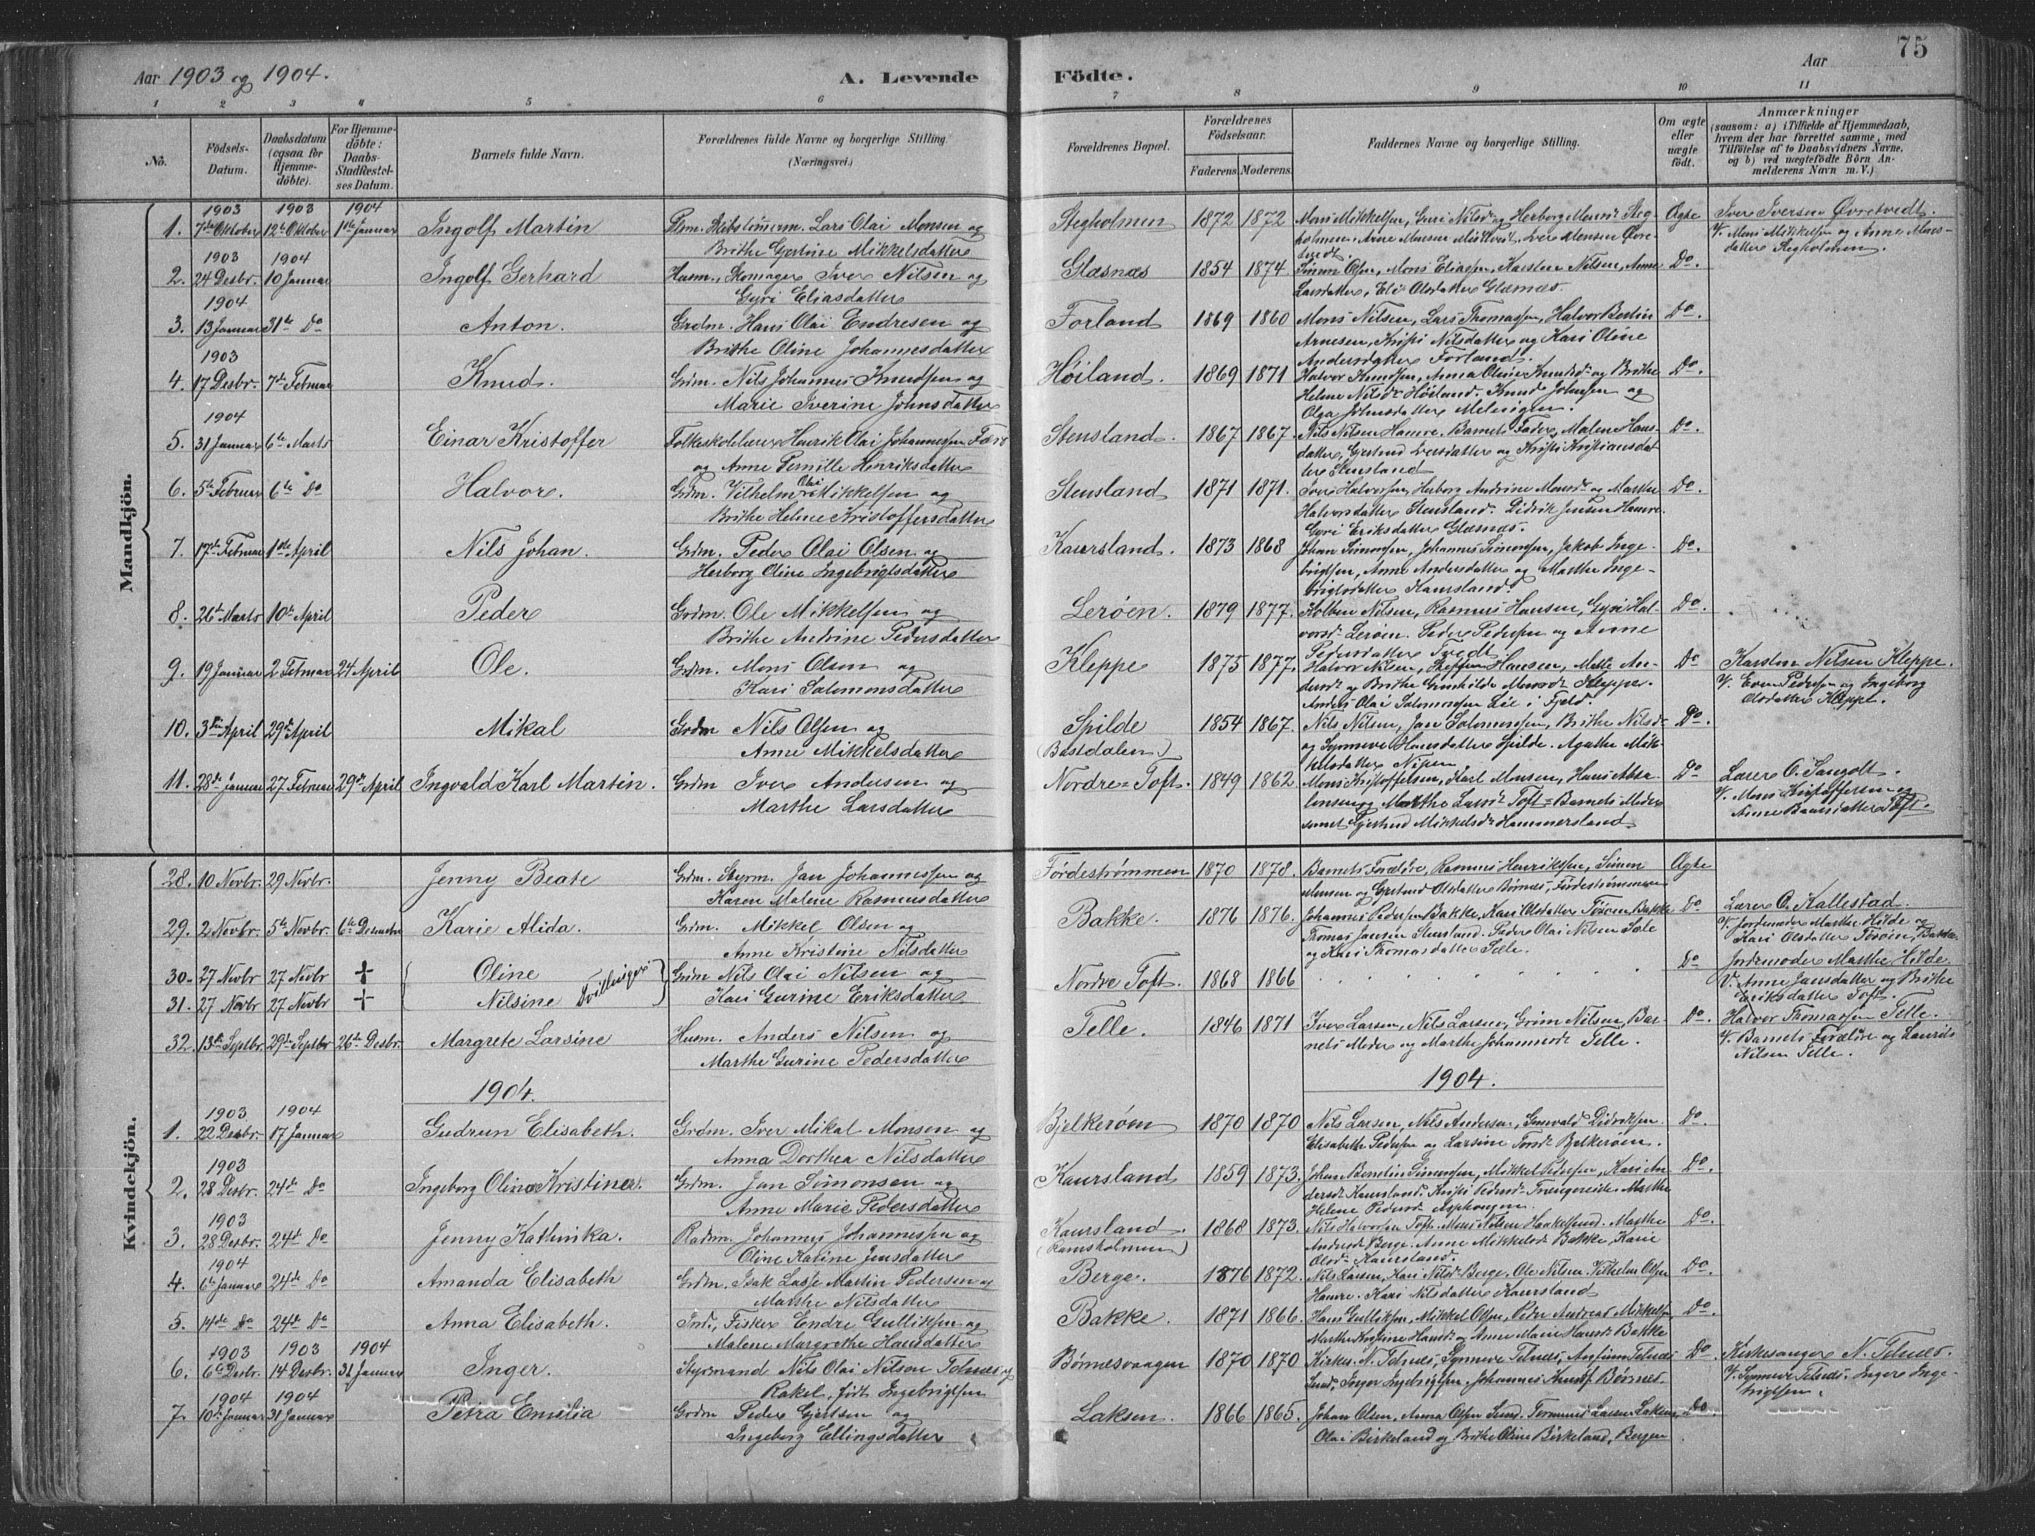 Aar 1903 og 1904.
A. Levende
Födte.
Aar
75
1 2 3 4 5 6 7 8 9 10 11
No.
Födsels-Datum.
Daabsdatum (ogsaa for Hjemme-döbte).
For Hjemme-döbte: Daabs-Stadfæstel-ses Datum.
Barnets fulde Navn.
Forældrenes fulde Navne og borgerlige Stilling (Næringsvei.)
Forældrenes Bopæl.
Forældrenes Födselsaar.
Faderens. Moderens.
Faddernes Navne og borgerlige Stilling.
Om ægte eller uægte födt.
Anmærkninger
(saasom: a) i Tilfælde af Hjemmedaab, hvem der har forrettet samme, med Tilföielse af to Daabsvidners Navne, og b) ved uægtefödte Börn An-melderens Navn m. V.)
Mandkjön.
1903 1903 1904
1. 7de Oktober 12te Oktober 1ste Januar Ingolf Martin Lars Olai Monsen og Stegholmen 1872 1872 Ægte Iver Iversen Øvretvedt.
Brithe Gertine Mikkelsdatter
1903 1904
2. 24 Desbr. 10 Januar Ingolf Gerhard Husm. Skomager Iver Nilsen og Glæsnæs 1854 1874 Simon Olsen, Mons Eliassen, Karsten Nilsen, Anne Do.
Gyri Eliasdatter Larsdatter, Eli Olsdatter Glæsnæs
1904
3. 13 Januar 31te Do Anton. Grdm. Hans Olai Endresen og Forland 1869 1860 Mons Nilsen, Lars Thomassen, Halvor Bertin Do.
Brithe Oline Johannesdatter Arnesen, Kristi Nilsdatter og Kari Oline
Andersdatter Forland.
1903
4. 17 Desbr. 7de Februar Knud. Grdm. Nils Johannes Knudsen og Høiland. 1869 1871 Halvor Knudsen, Anna Oline Knudsd. og Brithe Do.
Marie Iverine Johnsdatter Helene Nilsdt Høiland. Knud Johnsen og
Olga Johnsdatter Melingen.
1904
5. 31 Januar 6te Marts Einar Kristoffer Folkeskolelærer Henrik Olai Johannessen Stensland. 1867 1867. Nils Nilsen Hamre. Barnets Fader, Malene Hans- Do.
og Anne Pernille Henriksdatter datter, Gjertrud Larsdatter og Kristi Kristiansdat
ter Stensland
6. 5te Februar 6te Do Halvor. Grdm. Vilhelm Olai Mikkelsen og Stensland 1871 1871. Iver Halvorsen, Herborg Andrine Monsdt og Marthe Do.
Brithe Helene Kristoffersdatter Halvorsdatter Stensland. Didrik Jensen Hamre.
Gyri Eriksdatter Glæsnæs.
7. 17de Februar 1ste April Nils Johan. Grdm. Peder Olai Olsen og Kaursland. 1873 1868 Johan Simonsen, Johannes Simonsen, Jakob Inge- Do.
Herborg Oline Ingebrigtsdatter brigtsen, Anne Andersdatter og Marthe Inge-
brigtsdatter Kaursland.
8. 26te Marts 10de April Peder Grdm. Ole Mikkelsen og Lerøen. 1879 1877. Kolben Nilsen, Rasmus Hansen, Gyri Hal- Do.
Brithe Andrine Pedersdatter vorsd. Lerøen. Peder Pedersen og Anne
Pedersdatter Tvedt.
9. 19 Januar 2 Februar 24 April Ole. Grdm. Mons Olsen og Kleppe 1875 1877. Halvor Nilsen, Steffen Hansen, Mette An- Do Karsten Nilsen Kleppe.
Kari Salomonsdatter dersdt og Brithe Gunhilde Monsdt Kleppe. V. Even Pedersen og Ingeborg
Anders Olai Salomonsen Lie i Fjeld. Olsdatter Kleppe.
10. 3die April 29de April Mikal Grdm Nils Olsen og Spilde 1854 1867. Nils Nilsen, Jan Salomonsen, Brithe Nilsd- Do.
Anne Mikkelsdatter (Botsdalen) og Synneve Hansdatter Spilde. Agathe Mik-
kelsdatter Nipen
11. 28de Januar 27 Februar 29de April Ingvald Karl Martin. Grdm Iver Andersen og Nordre=Toft. 1849 1862 Mons Kristoffersen, Karl Monsen, Hans Absa- Do Lærer O. Sangolt.
Marthe Larsdatter lonsen og Marthe Larsdt Toft=Barnets Moder V. Mons Kristoffersen og
samt Gjertrud Mikkelsdt Hammersland Anne Baarsdatter Toft.
Kvindekjön.
28. 10 Novbr. 29 Novbr. Jenny Beate Grdm. Styrm. Jan Johannessen og Førdestrømmen 1870 1878. Barnets Forældre, Rasmus Henriksen, Simon Ægte
Karen Malene Rasmusdatter Jensen og Gjertrud Olsdatter Børnes, Førdestrømmen
29. 2 Novbr. 5te Novbr. 6te Desember Karie Alida. Grdm. Mikkel Olsen og Bakke. 1876 1876. Johannes Pedersen Bakke, Kari Olsdatter Tøsøen, Bakke Do Lærer O. Kallestad.
Anne Kristine Nilsdatter Thomas Jansen Stensland. Peder Olai Nilsen Tæle V. Jordemoder Marthe Hilde og
og Kari Thomasdatter Tæle. Kari Olsdatter Tøsøen, Bakke.
30. 27 Novbr 27 Novbr + Oline Tvillinger Grdm Nils Olai Nilsen og Nordre Toft. 1868 1866 Do Jordemoder Marthe Hilde
31. 27 Novbr 27 Novbr + Nilsine Kari Gurine Eriksdatter V. Anne Jansdatter og Brithe
Eriksdatter Toft.
32. 13de Septbr 29de Septbr 26te Desbr. Margrete Larsine Husm. Anders Nilsen og Telle. 1846 1871 Iver Larsen, Nils Larsen, Grim Nilsen, Bar- Do. Halvor Thomassen Telle.
Marthe Gurine Pedersdatter nets Moder og Marthe Johannesdt Telle. V. Barnets Forældre og Laurits
Nilsen Telle.
1904. 1904.
1903 1904
1. 22 Desbr. 17 Januar Gudrun Elisabeth. Grdm. Iver Mikal Monsen og Bjelkerøen 1870 1870 Nils Larsen, Nils Andersen, Didriksen Do.
Anna Dorthea Nilsdatter Elisabeth Pedersen og Larsine Bjelkerøen.
1903
2. 28 Desbr. 24de Do Ingeborg Oline Kristine. Grdm. Jan Simonsen og Kaursland 1859 1873. Johan Bendtin Simonsen, Mikkel Pedersen, Kari An- Do.
Anne Marie Pedersdatter dersdt Kaursland. Kristi Pedersdt Trengereide. Marthe
Helene Pedersd.
1903
3. 28 Desbr. 24de Do Jenny Kathinka. Johannes Johannessen og Kaursland. 1868 1873. Nils Halvorsen Toft. Mons Nilsen Haakelsund. Marthe Do.
Oline Karine Jensdatter (Ramsholmen) Andersdt Berge. Anne Mikkelsdt Bakke, Karie
Olsd. Kaursland.
1904
4. 6te Januar 24de Do Amanda Elisabeth Grdm. Isak Lasse Martin Pedersen og Berge. 1876 1872. Nils Larsen, Kari Nilsdt Berge. Ole Nilsen. Vilhelm Olsen Do.
Marthe Nilsdatter Hamre. Kari Nilsdatter Kaursland
5. 14de Do 24de Do Anna Elisabeth. Ind., Fisker Endre Gulliksen og Bakke. 1871 1866. Hans Gulliksen, Mikkel Olsen, Peder Andreas Mikkelsen Do.
Malene Margrethe Hansdatter Marthe Kristine Hansdt og Anne Marie Hansdt Bakke
1903 1903 1904
6. 6te Desbr. 14 Desbr. 31 Januar Inger. Styrmand Nils Olai Nilsen Telnes og Børnesvaagen 1870 1870 Kirkes. N. Telnes, Synneve Telnes, Do. Kirkesanger N. Telnes.
Rakel, født Ingebrigtsen Inger Ingebrigtsen. Johannes Børnes. V. Synneve Telnes. Inger Inge-
brigtsen.
1904 1904
7. 10de Januar 31 Januar Petra Emilia Grdm Peder Gjertsen og Laksen. 1866 1865. Johan Olsen, Anna Olsen Larsen Laksen, Do
Ingeborg Ellingsdatter Olai Birkeland og Brithe Oline Birkeland, Bergen